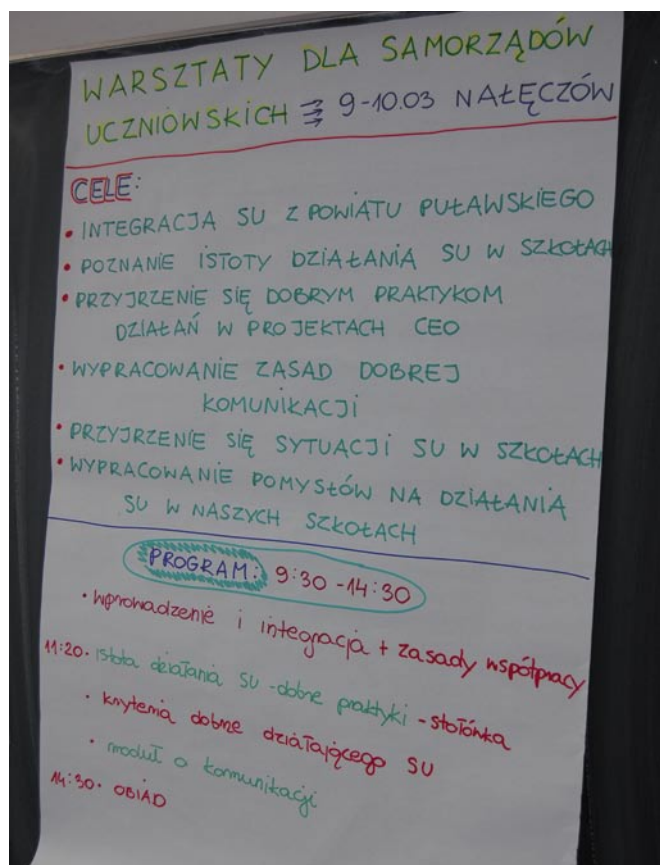 WARSZTATY DLA SAMORZĄDÓW
UCZNIOWSKICH ⇒ 9-10.03 NAŁĘCZÓW
CELE:
• INTEGRACJA SU Z POWIATU PUŁAWSKIEGO
• POZNANIE ISTOTY DZIAŁANIA SU W SZKOŁACH
• PRZYJRZENIE SIĘ DOBRYM PRAKTYKOM
DZIAŁAŃ W PROJEKTACH CEO
• WYPRACOWANIE ZASAD DOBREJ
KOMUNIKACJI
• PRZYJRZENIE SIĘ SYTUACJI SU W SZKOŁACH
• WYPRACOWANIE POMYSŁÓW NA DZIAŁANIA
SU W NASZYCH SZKOŁACH
PROGRAM: 9:30-14:30
• wprowadzenie i integracja + zasady współpracy
11:20• istota działania SU - dobre praktyki - stołówka
• kryteria dobrze działającego SU
• moduł o komunikacji
14:30• OBIAD